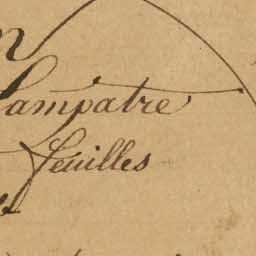 Campatre
feuilles